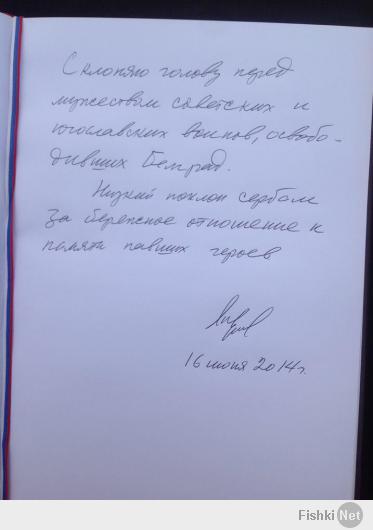 Склоняю голову перед
мужеством советских и
югославских воинов, освобо-
дивших Белград.
Низкий поклон сербам
за бережное отношение к
памяти павших героев
16 июня 2014г.
Fishki Net